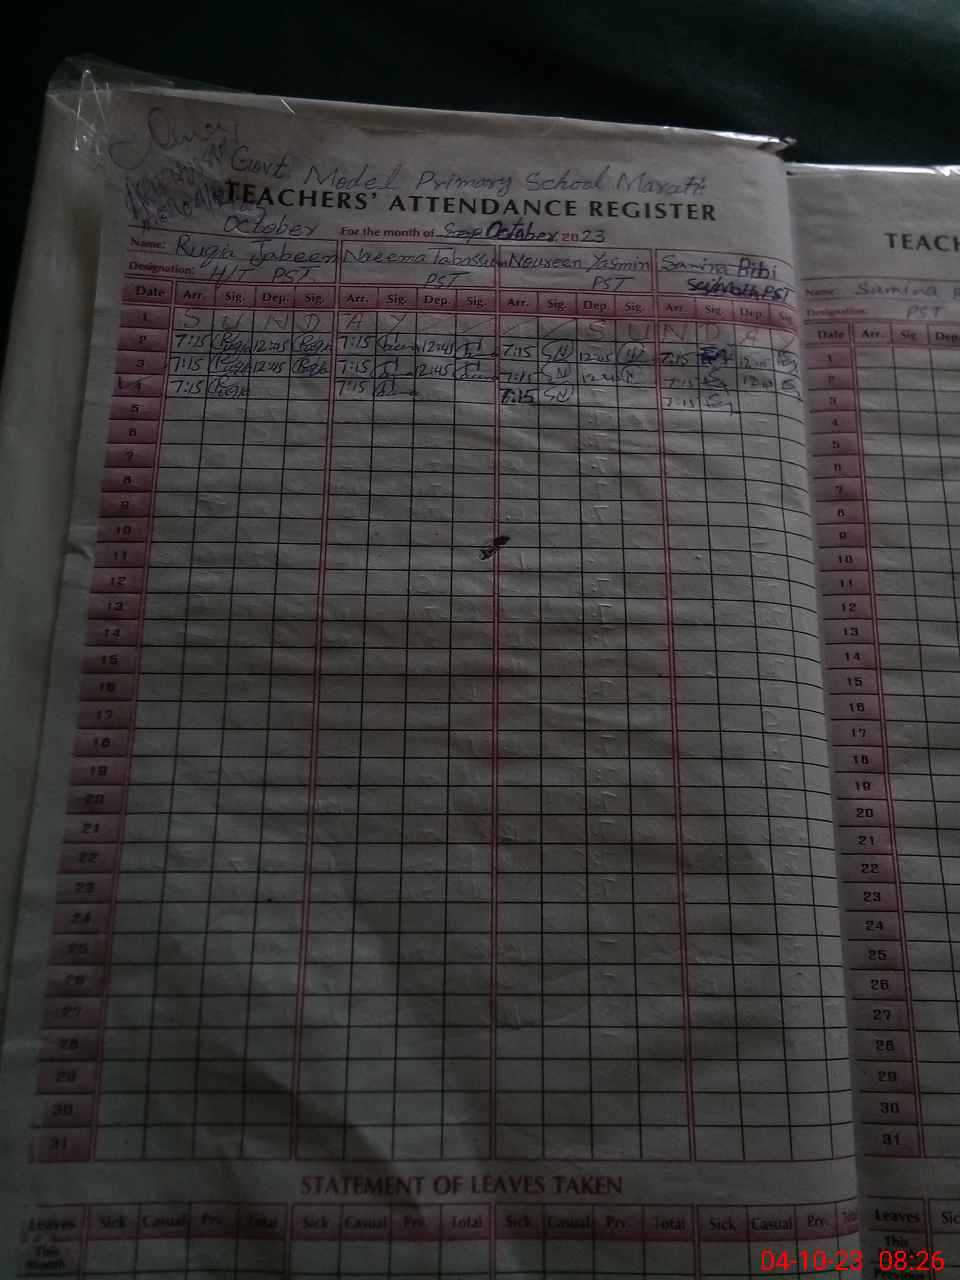 Govt. Model Primary School Marath
TEACHERS' ATTENDANCE REGISTER
October For the month of Sep October, 2023
Name: Ruqia Jabeen Naeema Tabassum Noureen Yasmin Samina Bibi
Designation: H/T PST PST PST PST
Date Arr. Sig. Dep. Sig. Arr. Sig. Dep. Sig. Arr. Sig. Dep. Sig. Arr. Sig. Dep. Sig
1 S U N D A Y S U N D A Y
2 7:15 12:45 7:15 12:45 7:15 12:45 7:15 12:45
3 7:15 12:45 7:15 12:45 7:15 12:45 7:15
4 7:15 7:15 7:15 7:15
5
6
7
8
9
10
11
12
13
14
15
16
17
18
19
20
21
22
23
24
25
26
27
28
29
30
31
STATEMENT OF LEAVES TAKEN
Leaves Sick Casual Prv. Total Sick Casual Prv. Total Sick Casual Prv. Total Sick Casual Prv. Total
This Month
TEACH
Name: Samina
Designation: PST
Date Arr. Sig. Dep.
1
2
3
4
5
6
7
8
9
10
11
12
13
14
15
16
17
18
19
20
21
22
23
24
25
26
27
28
29
30
31
Leaves Sic
This
04-10-23 08:26